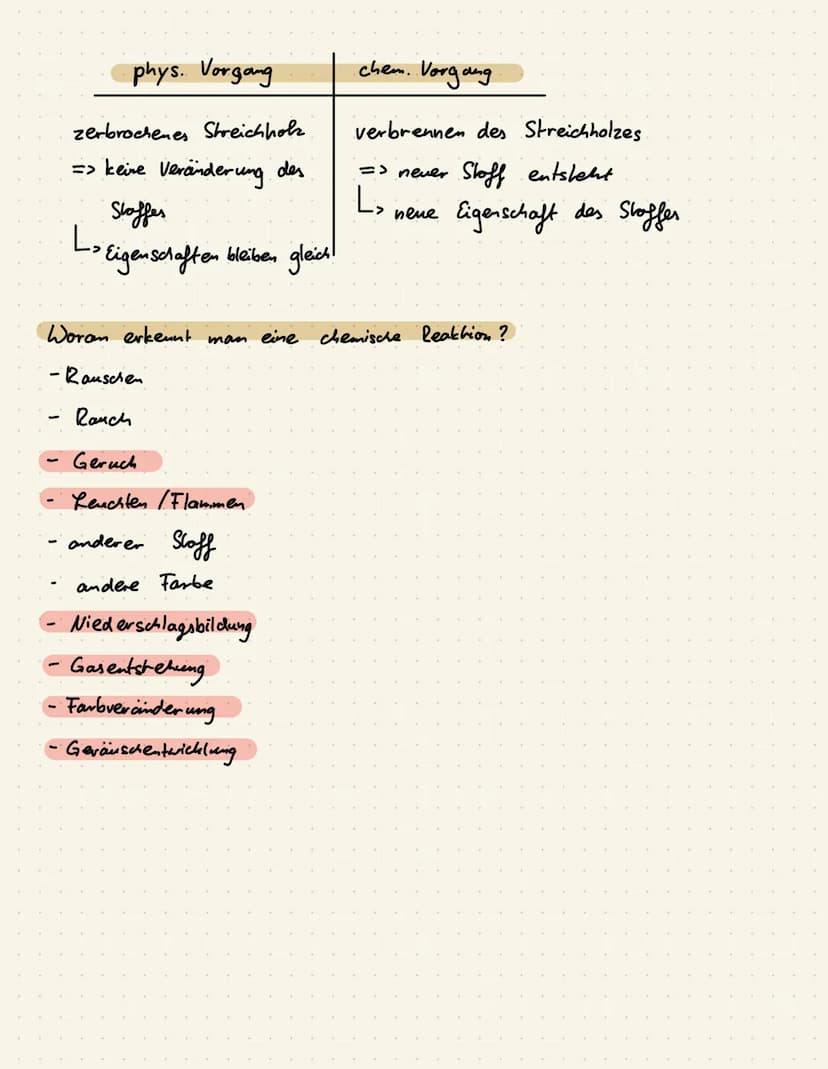 phys. Vorgang
chem. Vorgang
zerbrochenes Streichholz
=> keine Veränderung des
Stoffes
↳ Eigenschaften bleiben gleich
verbrennen des Streichholzes
=> neuer Stoff entsteht
↳ neue Eigenschaft des Stoffes
Woran erkennt man eine chemische Reaktion?
- Rauschen
- Rauch
- Geruch
- Leuchten / Flammen
- anderer Stoff
- andere Farbe
- Niederschlagsbildung
- Gasentstehung
- Farbveränderung
- Geräuschentwicklung